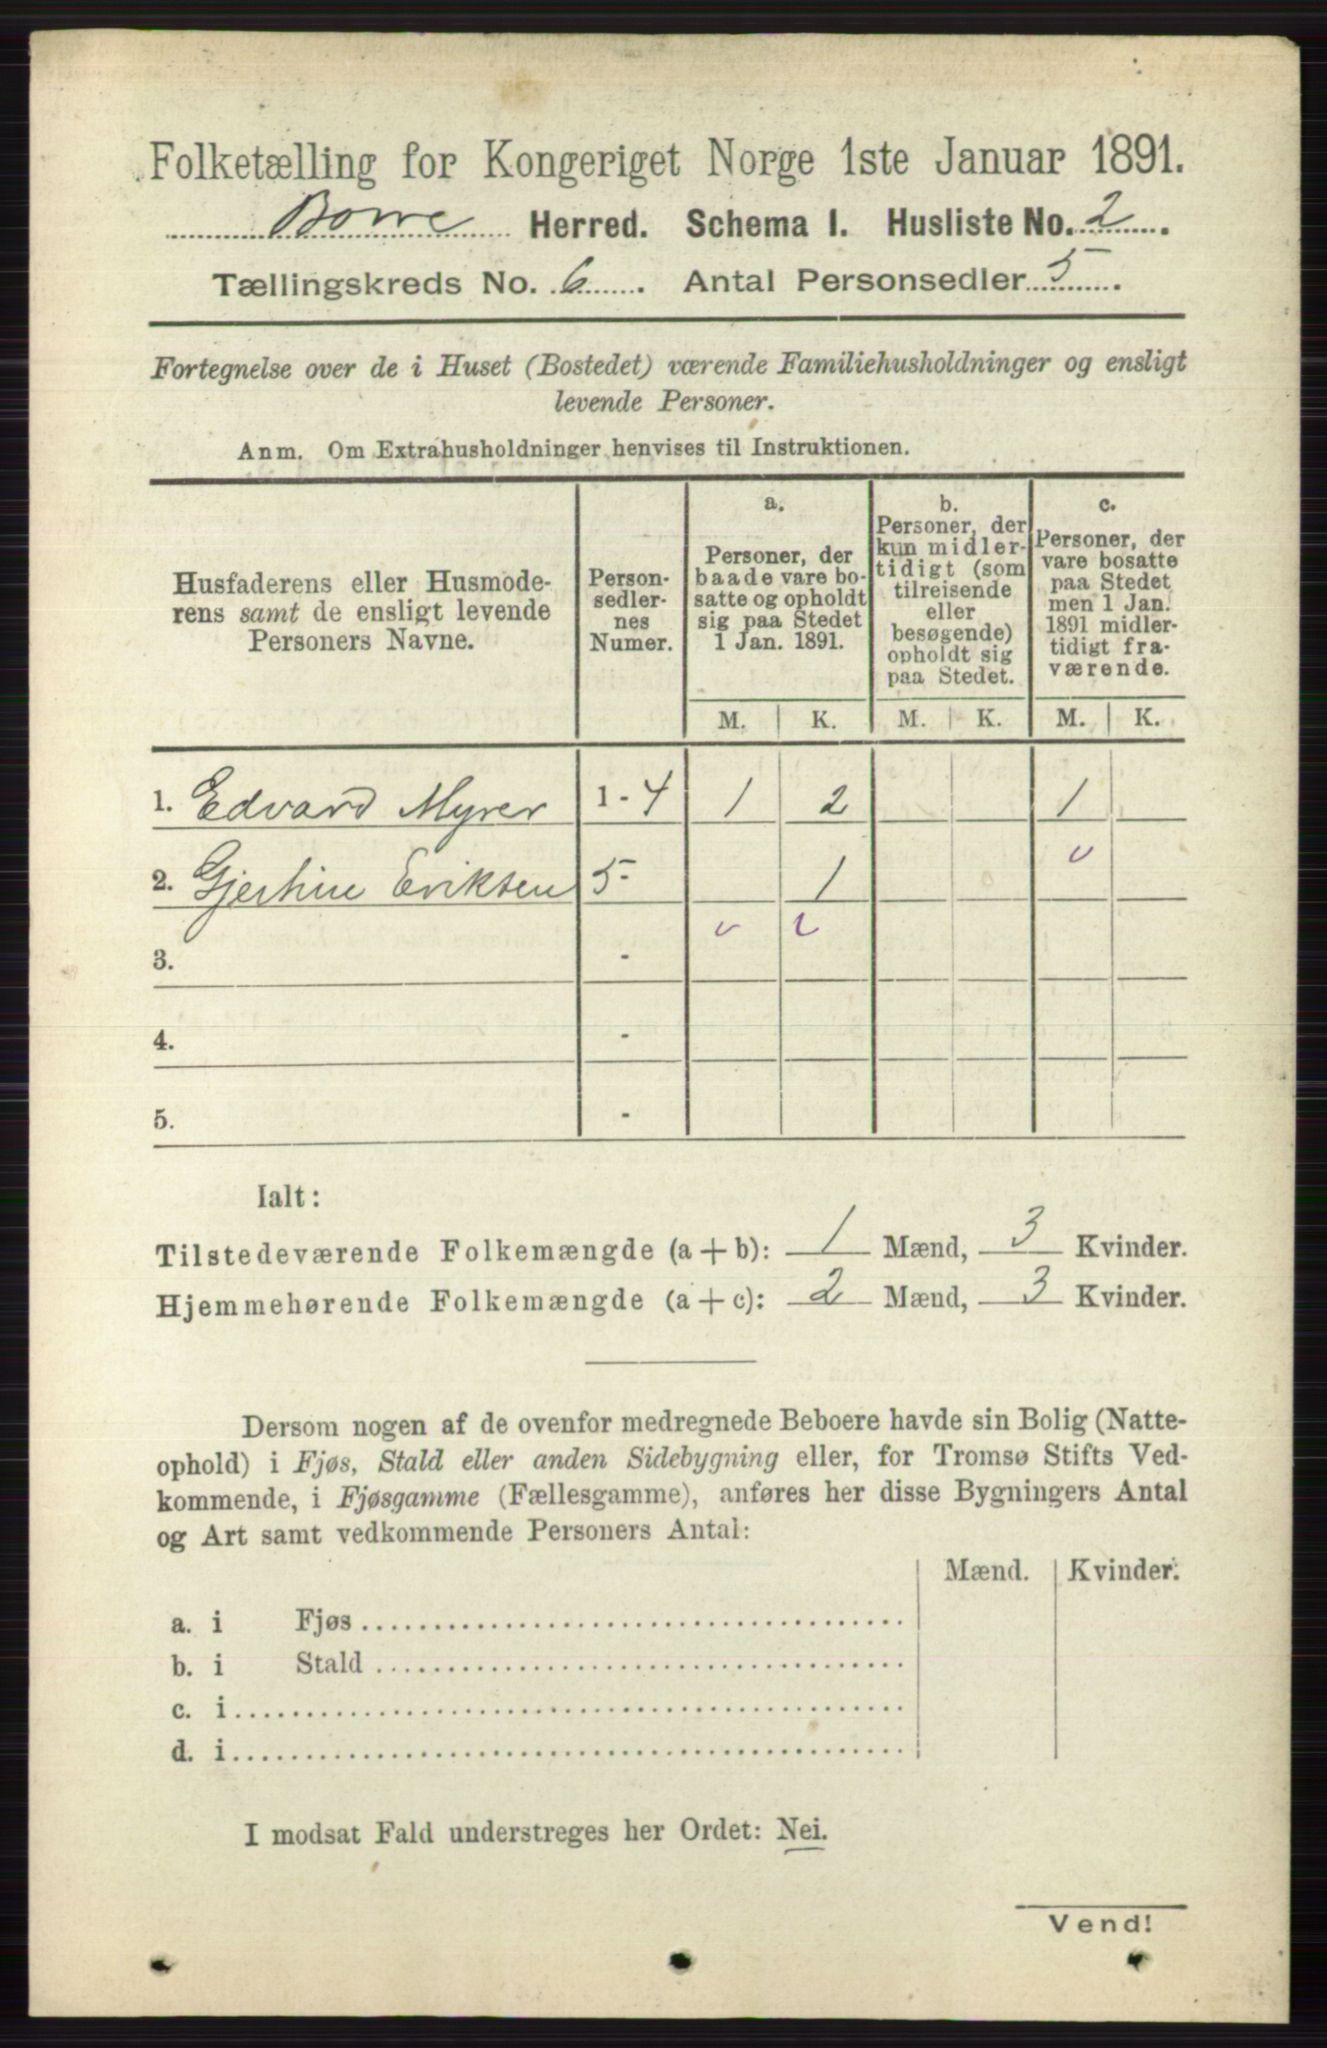 Folketælling for Kongeriget Norge 1ste Januar 1891.
Borre Herred. Schema I. Husliste No. 2.
Tællingskreds No. 6. Antal Personsedler 5.
Fortegnelse over de i Huset (Bostedet) værende Familiehusholdninger og ensligt
levende Personer.
Anm. Om Extrahusholdninger henvises til Instruktionen.
Husfaderens eller Husmode-
rens samt de ensligt levende
Personers Navne.
Person-
sedler-
nes
Numer.
a.
Personer, der
baade vare bo-
satte og opholdt
sig paa Stedet
1 Jan. 1891.
b.
Personer, der
kun midler-
tidigt (som
tilreisende
eller
besøgende)
opholdt sig
paa Stedet.
c.
Personer, der
vare bosatte
paa Stedet
men 1 Jan.
1891 midler-
tidigt fra-
værende.
M. K. M. K. M. K.
1. Edvard Myrer 1 - 4 1 2 1
2. Gjerhine Eriksen 5 - 1
3. -
4. -
5. -
Ialt:
Tilstedeværende Folkemængde (a + b): 1 Mænd, 3 Kvinder.
Hjemmehørende Folkemængde (a + c): 2 Mænd, 3 Kvinder.
Dersom nogen af de ovenfor medregnede Beboere havde sin Bolig (Natte-
ophold) i Fjøs, Stald eller anden Sidebygning eller, for Tromsø Stifts Ved-
kommende, i Fjøsgamme (Fællesgamme), anføres her disse Bygningers Antal
og Art samt vedkommende Personers Antal:
Mænd. Kvinder.
a. i Fjøs
b. i Stald
c. i
d. i
I modsat Fald understreges her Ordet: Nei.
Vend!